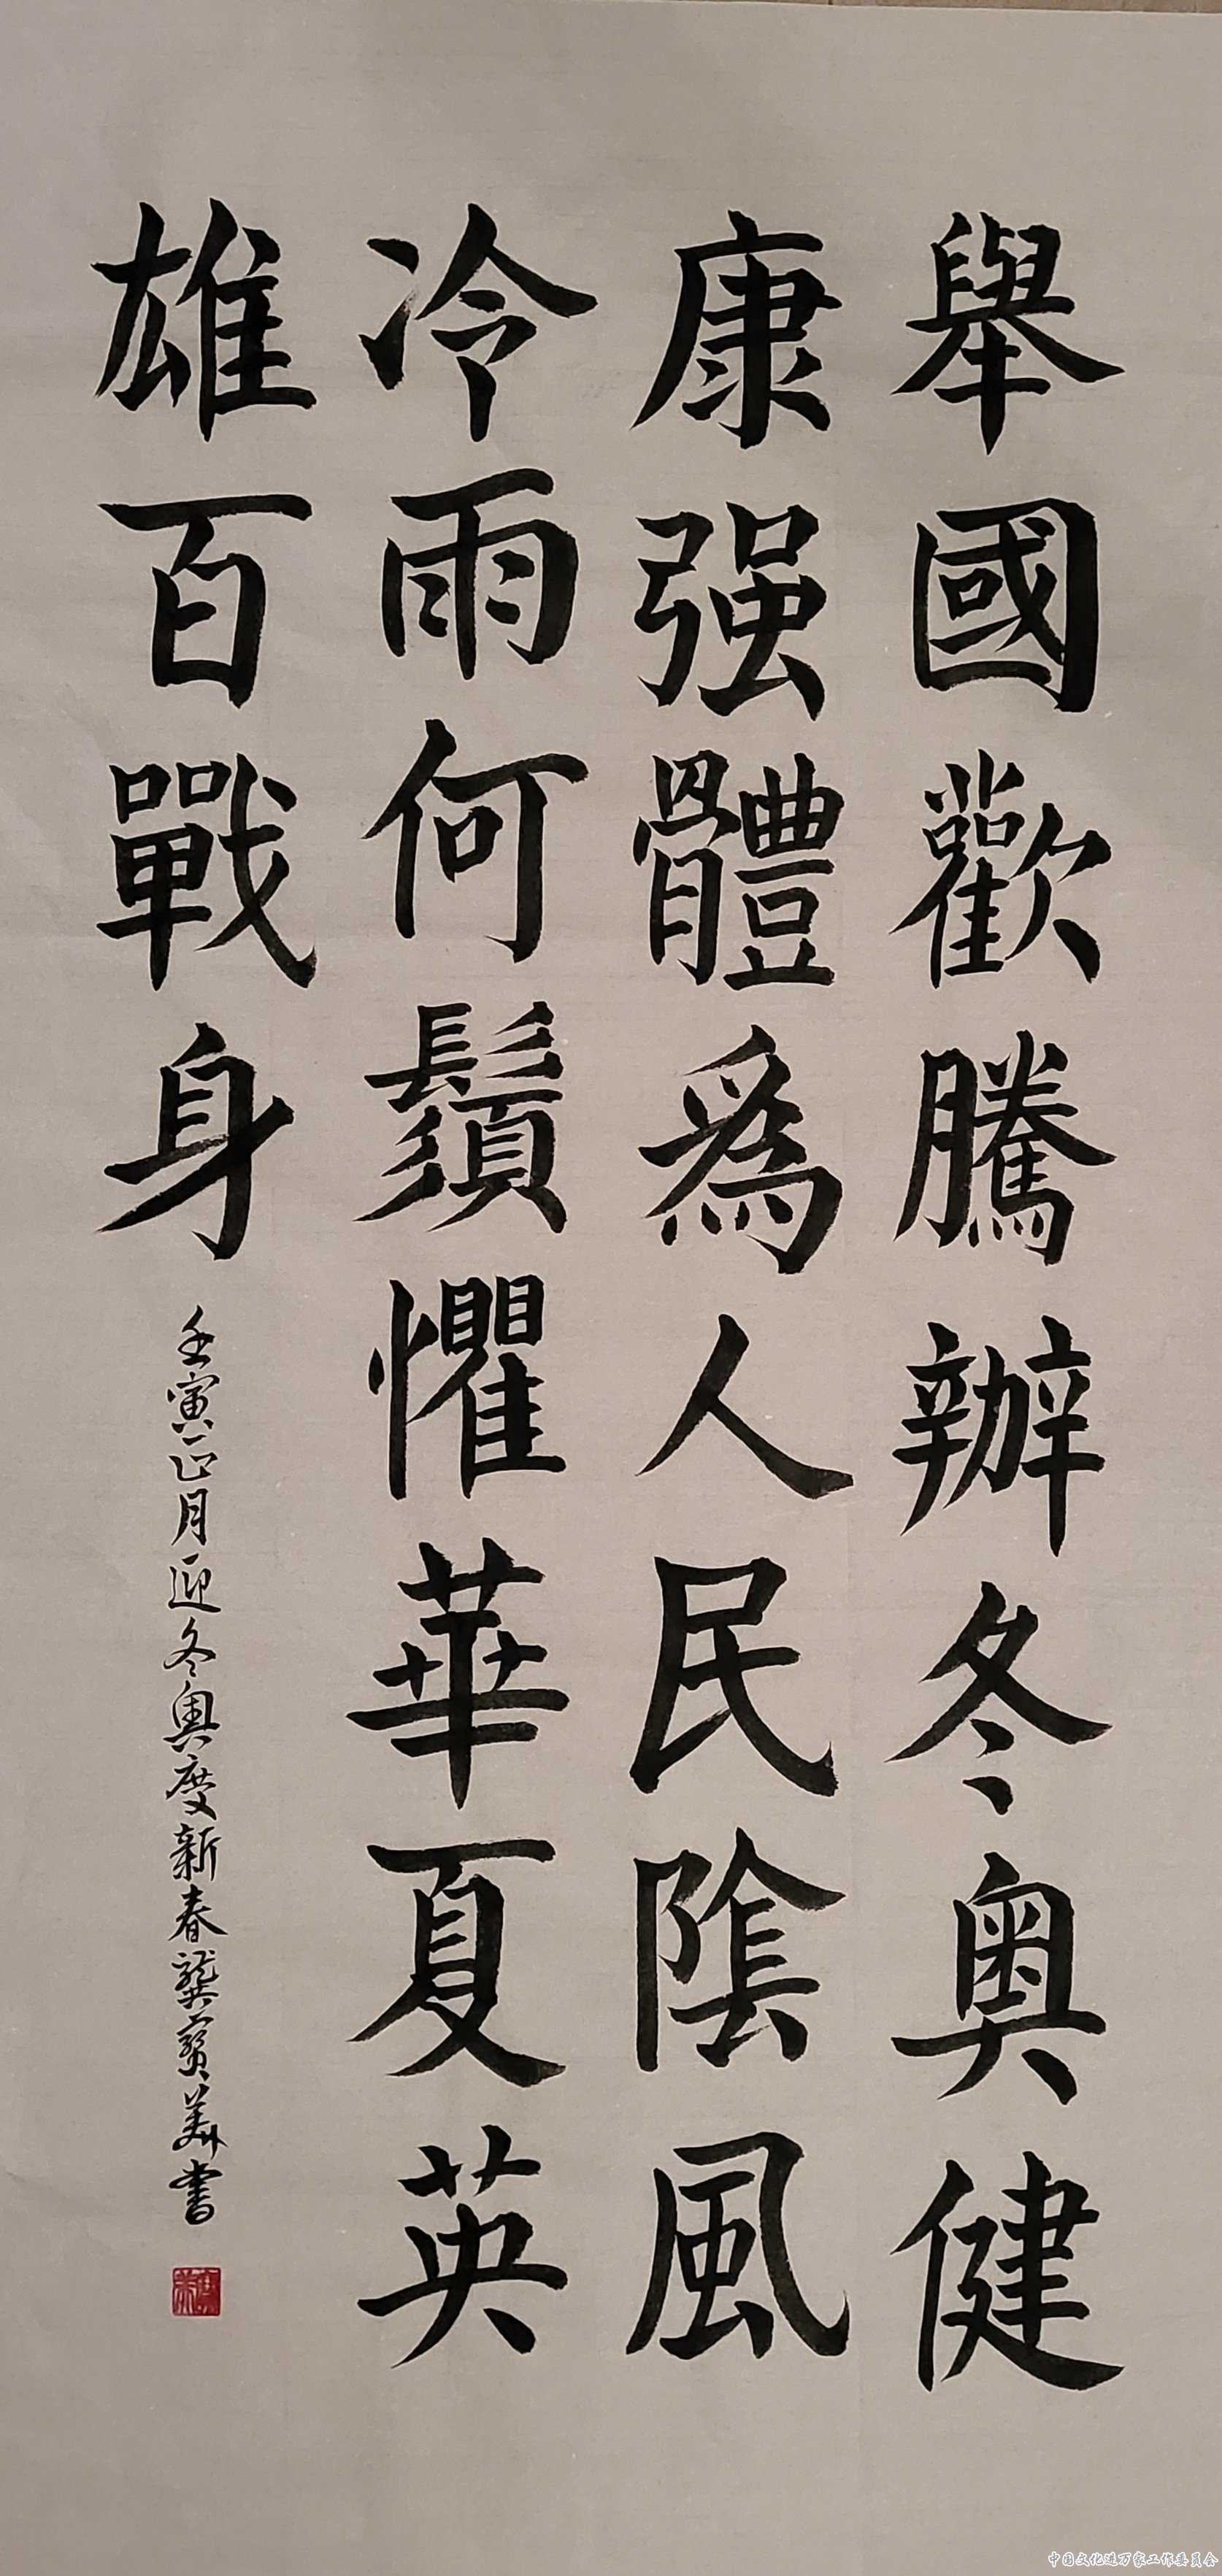 舉國歡騰辦冬奥健
康强體爲人民陰風
冷雨何鬚懼華夏英
雄百戰身
壬寅正月迎冬奥度新春龔寶美書
中国文化进万家工作委员会